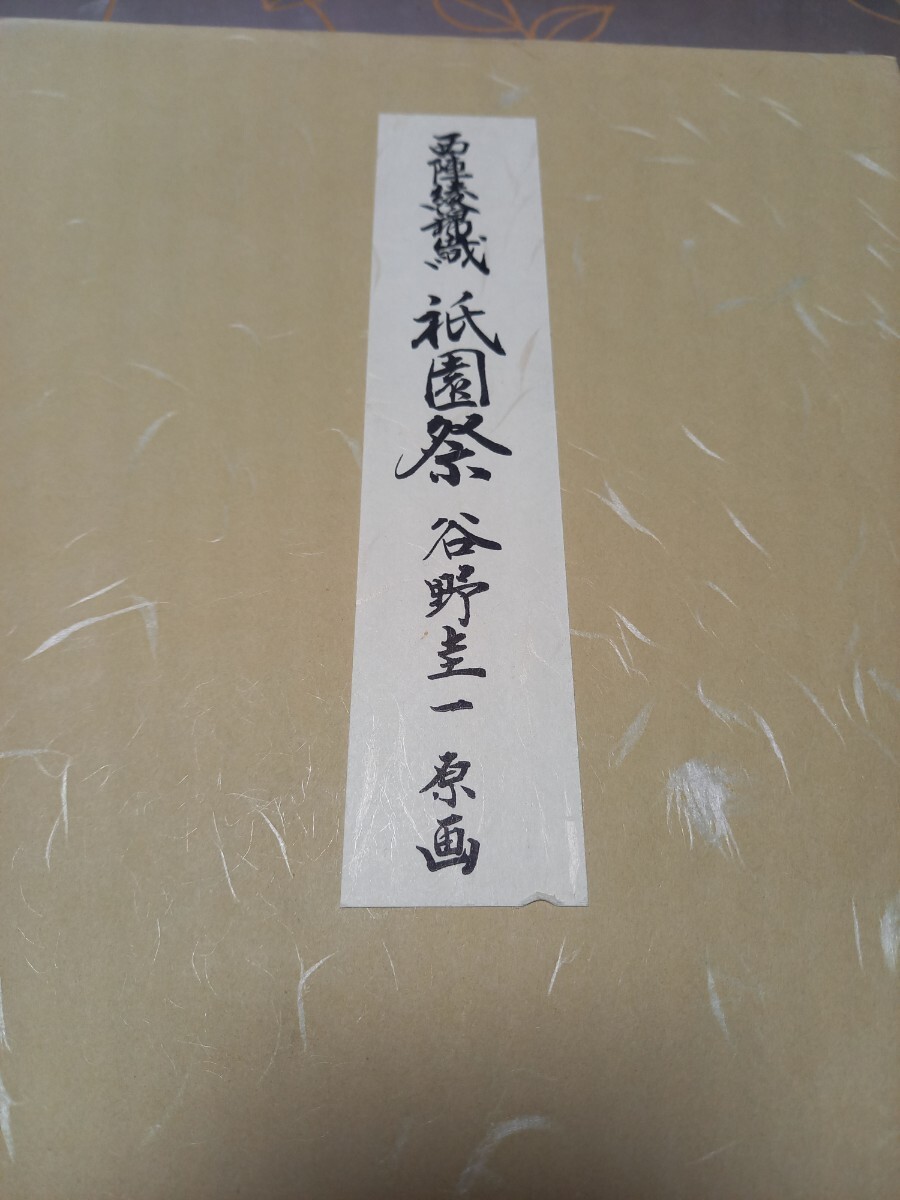 西陣綾錦織 祇園祭 谷野圭一 原画